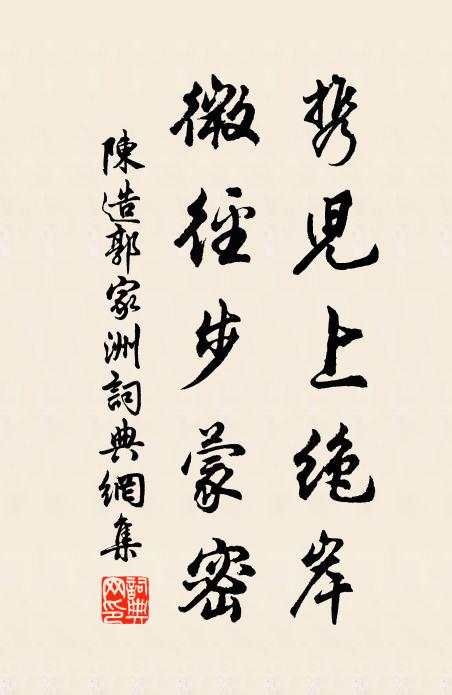 携児上绝岸
微徑步蒙密
陳造郭家洲詞典網集
詞典
网印